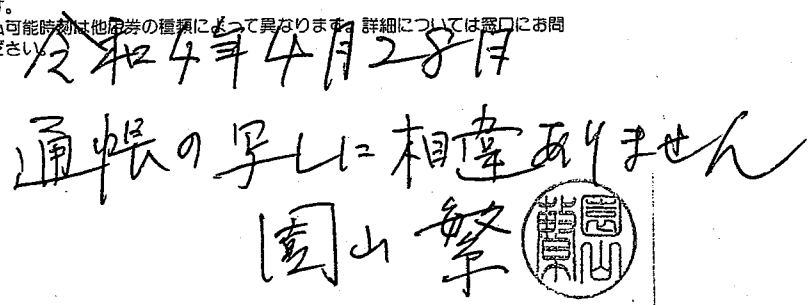 す。
可能時刻は他店券の種類によって異なります。詳細については窓口にお問
ださい。
令和4年4月28日
通帳の写しに相違ありません
園山 繁
園山繁